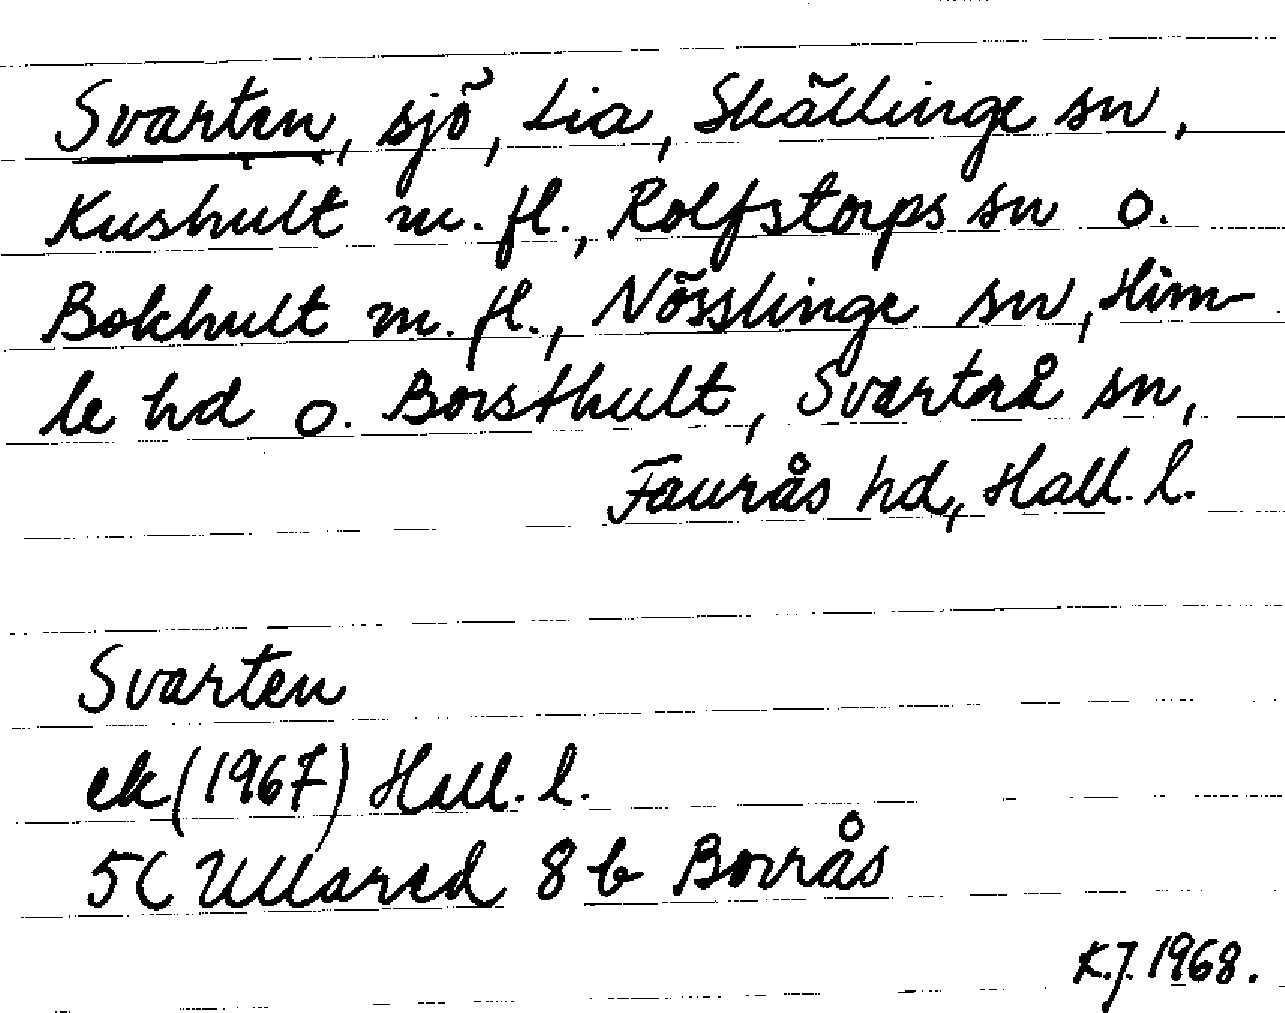 Svarten, sjö, Lia, Skällinge sn,
Kushult m. fl., Rolfstorps sn o.
Bokhult m. fl., Nösslinge sn, Him-
le hd o. Borsthult, Svartrå sn,
Faurås hd, Hall. l.
Svarten
ek (1967) Hall. l.
5C Ullared 8 b Borrås
K.J. 1968.